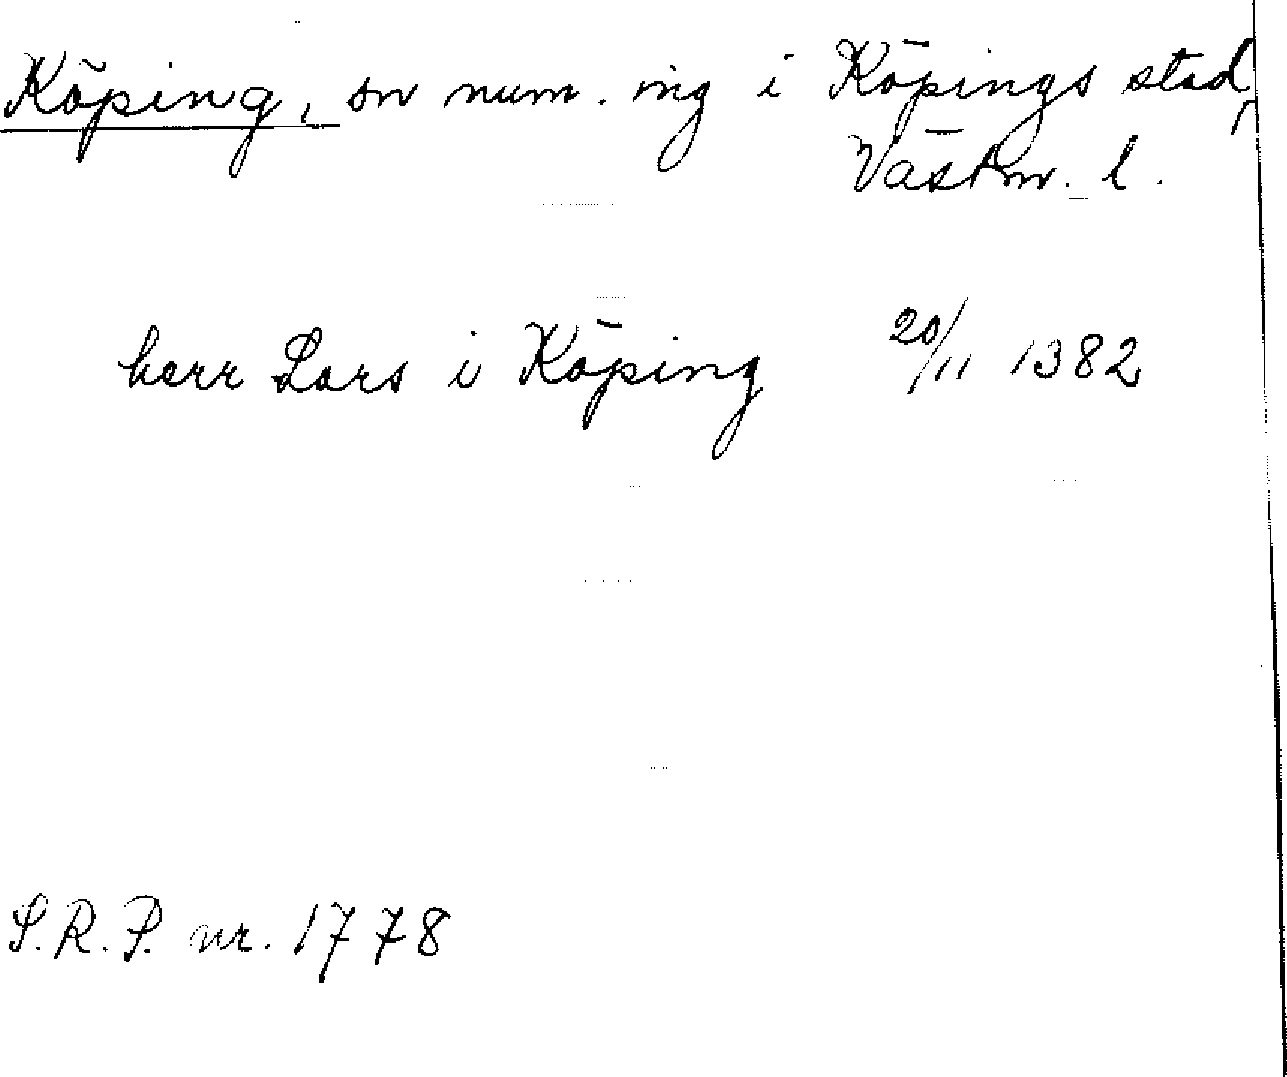 Köping, sn num. ing i Köpings stad,
Västm. l.
herr Lars i Köping 20/11 1382
S.R.P. nr. 1778